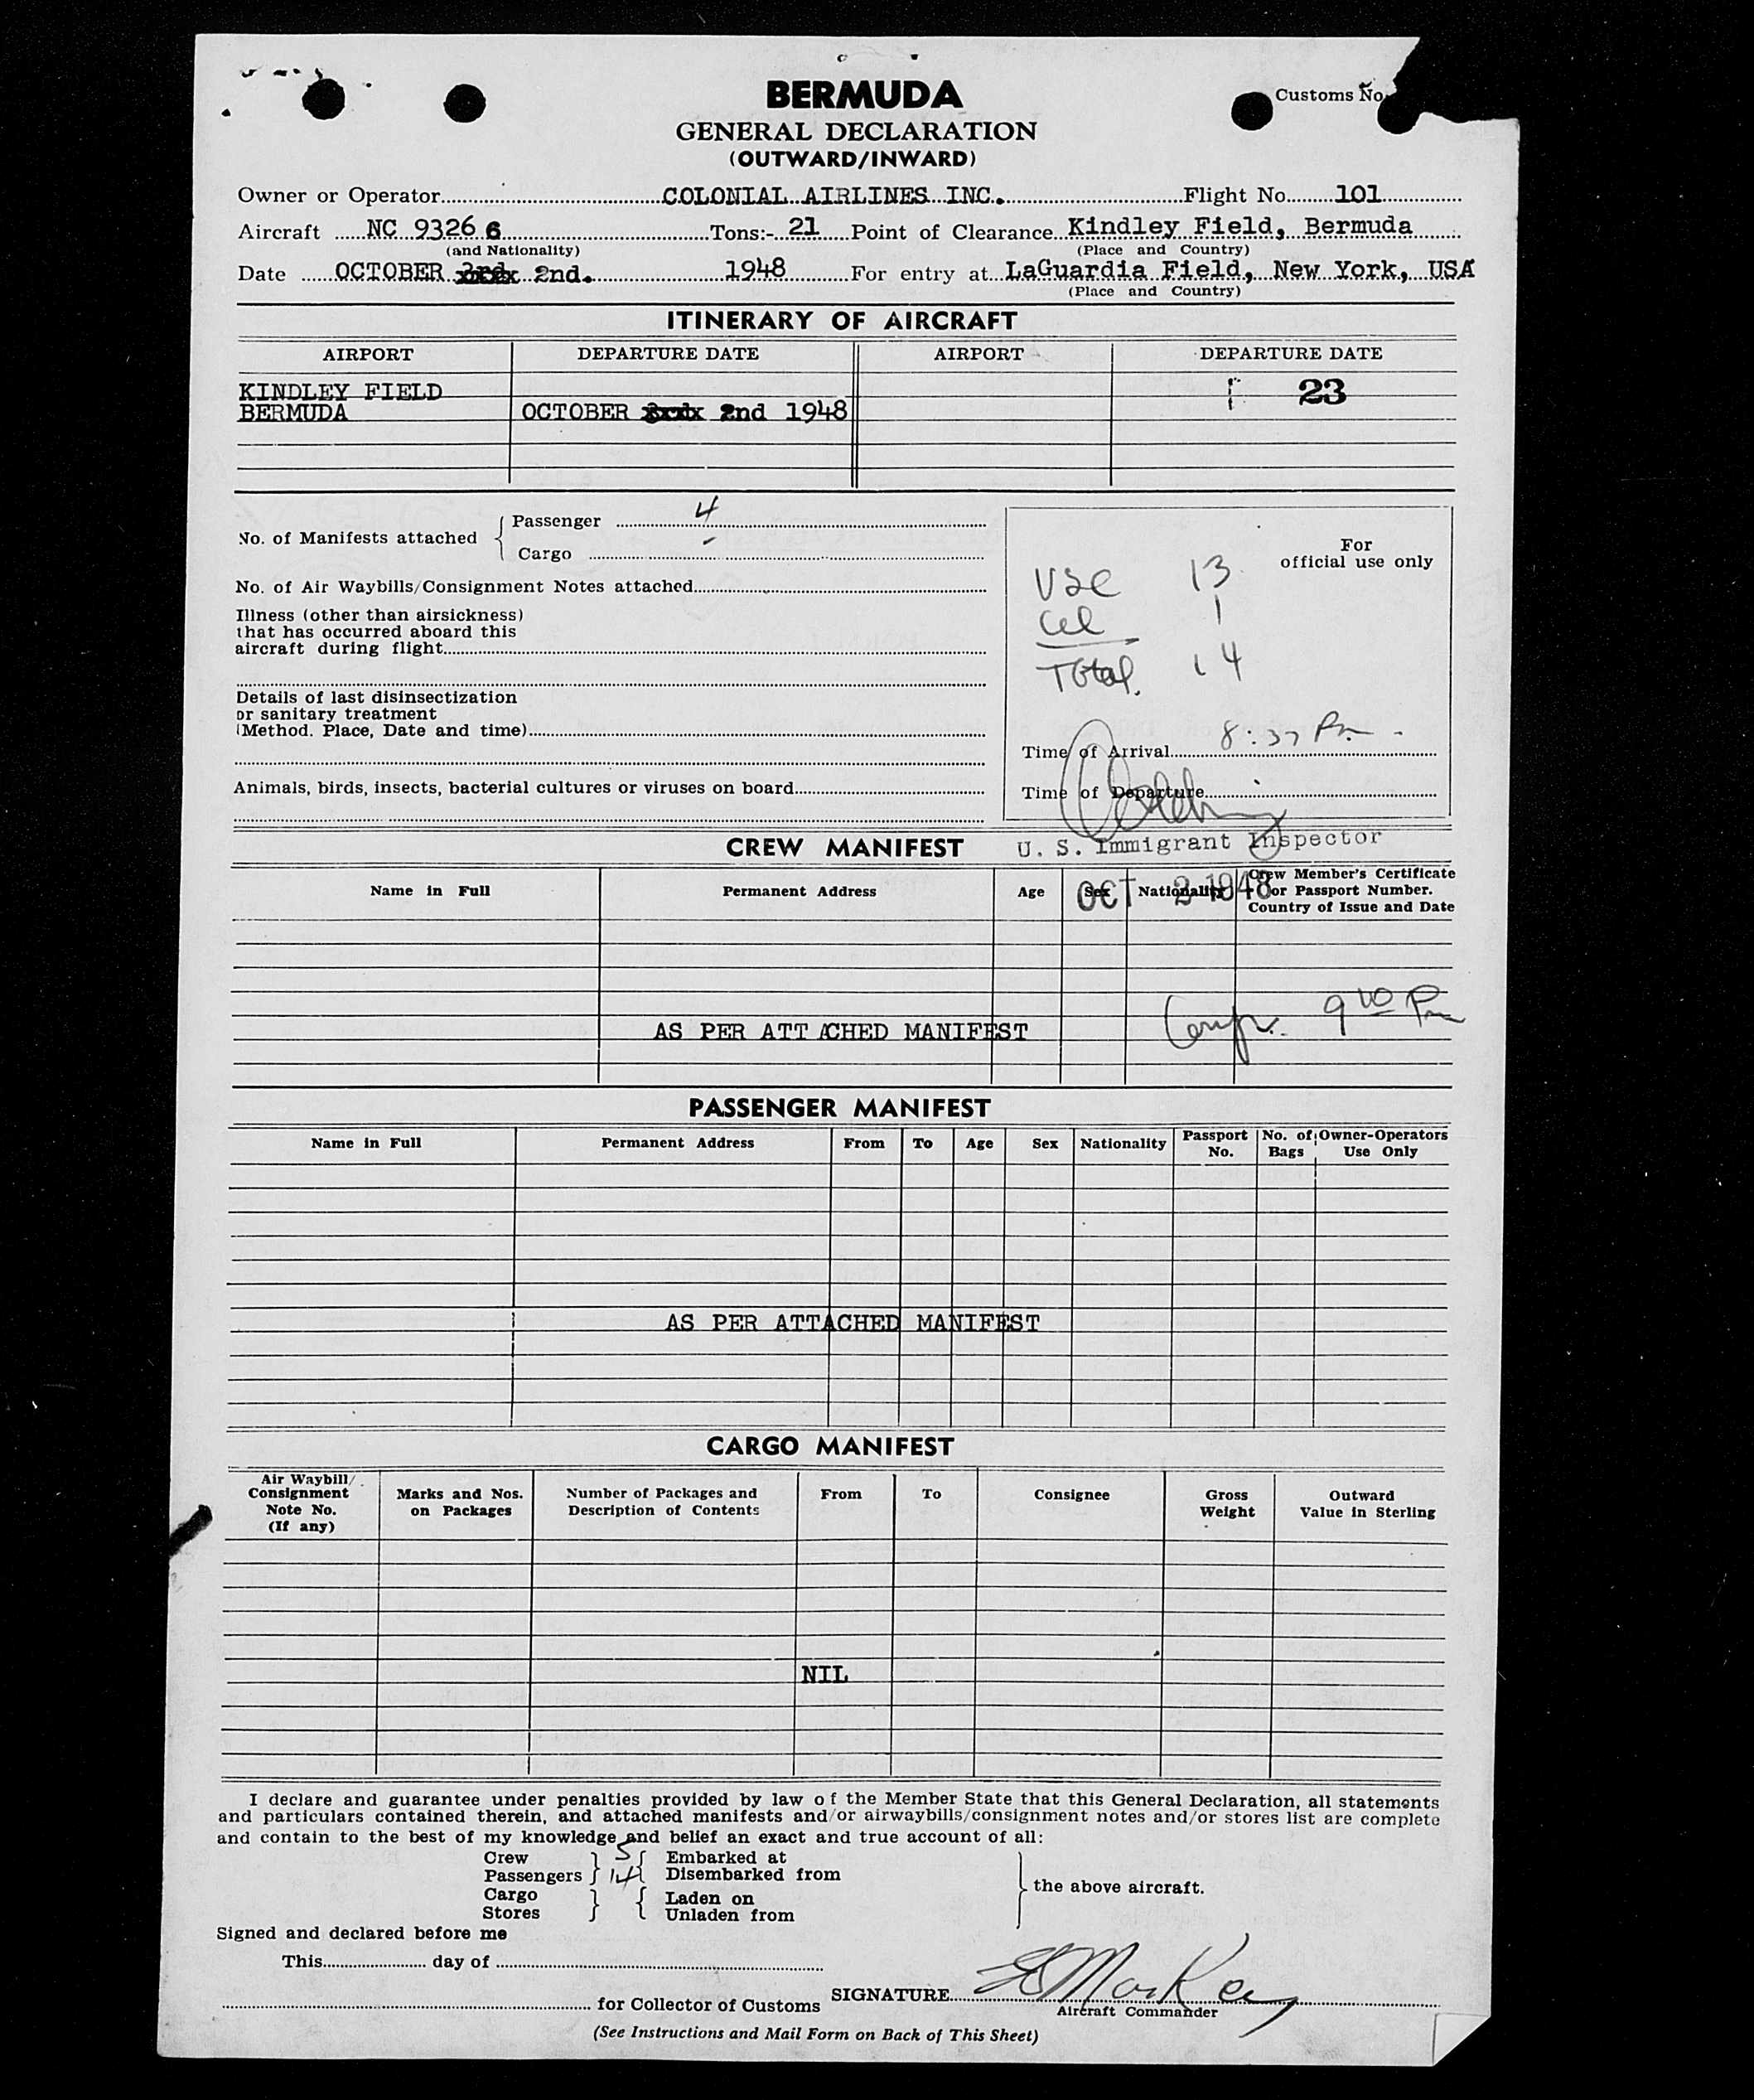 BERMUDA
Customs No
GENERAL DECLARATION
(OUTWARD/INWARD)
Owner or Operator COLONIAL AIRLINES INC. Flight No. 101
Aircraft NC 93266 Tons:- 21 Point of Clearance Kindley Field, Bermuda
(and Nationality) (Place and Country)
Date OCTOBER 2nd. 1948 For entry at LaGuardia Field, New York, USA
(Place and Country)
ITINERARY OF AIRCRAFT
AIRPORT DEPARTURE DATE AIRPORT DEPARTURE DATE
KINDLEY FIELD 23
BERMUDA OCTOBER 2nd 1948
No. of Manifests attached
Passenger 4
Cargo -
For
official use only
No. of Air Waybills/Consignment Notes attached
USC 13
Illness (other than airsickness)
that has occurred aboard this
aircraft during flight
1
Total 14
Details of last disinsectization
or sanitary treatment
(Method. Place, Date and time)
Time of Arrival 8:37 Pm
Animals, birds, insects, bacterial cultures or viruses on board
Time of Departure
CREW MANIFEST
U. S. Immigrant Inspector
Name in Full Permanent Address Age Sex Nationality Crew Member's Certificate
or Passport Number.
Country of Issue and Date
OCT 2 1948
AS PER ATT ACHED MANIFEST
9 00 Pm
PASSENGER MANIFEST
Name in Full Permanent Address From To Age Sex Nationality Passport No. No. of Bags Owner-Operators Use Only
AS PER ATTACHED MANIFEST
CARGO MANIFEST
Air Waybill/
Consignment
Note No.
(If any)
Marks and Nos.
on Packages
Number of Packages and
Description of Contents
From To Consignee
Gross
Weight
Outward
Value in Sterling
NIL
I declare and guarantee under penalties provided by law of the Member State that this General Declaration, all statements
and particulars contained therein, and attached manifests and/or airwaybills/consignment notes and/or stores list are complete
and contain to the best of my knowledge and belief an exact and true account of all:
Crew 5 Embarked at
Passengers 14 Disembarked from
the above aircraft.
Cargo Laden on
Stores Unladen from
Signed and declared before me
This day of
SIGNATURE
for Collector of Customs
Aircraft Commander
(See Instructions and Mail Form on Back of This Sheet)